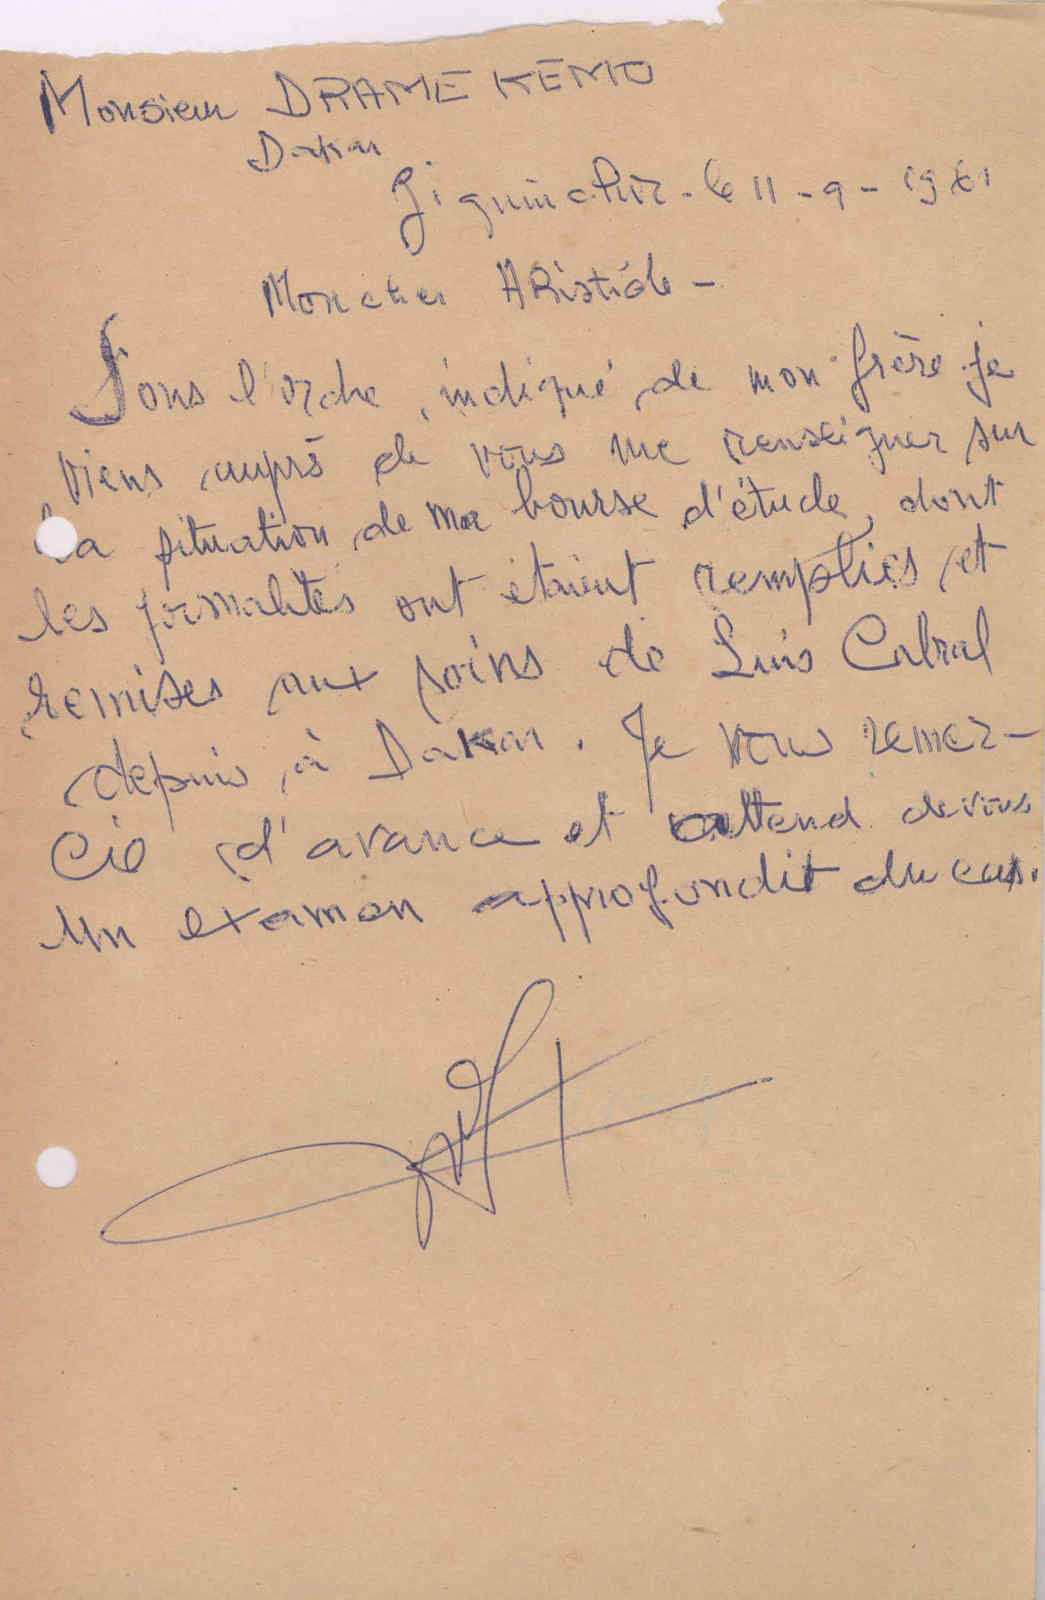 Monsieur DRAME KEMO
Dakar
Ziguinchor - le 11 - 9 - 1961
Mon cher ARistide -
Sous l'ordre indiqué de mon frère je
viens auprès de vous me renseigner sur
la situation de ma bourse d'étude, dont
les formalités ont étaient remplies et
remises aux soins de Luis Cabral
depuis à Dakar. Je vous remer-
cie d'avance et attend de vous
un examen approfondit du cas.